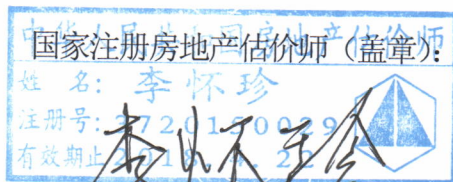 中华人民共和国房地产估价师
国家注册房地产估价师（盖章）：
姓 名：李怀珍
注册号：3720150029
有效期止2018. . 2
李怀珍